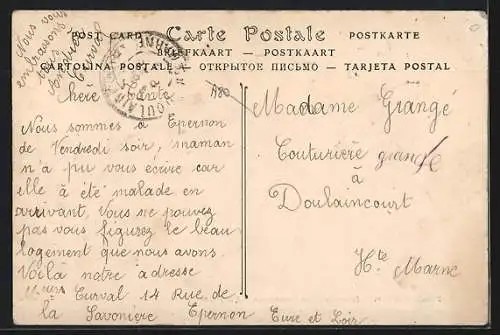 POST CARD Carte Postale POSTKARTE
BRIEFKAART — POSTKAART
CARTOLINA POSTALE — ОТКРЫТОЕ ПИСЬМО — TARJETA POSTAL
Nous vous
embrassons
tous
Curval
DOULAIN
MARNE
A80
Chère tante
Nous sommes à Epernon
de Vendredi soir, maman
n'a pu vous écrire car
elle à été malade en
arrivant, Vous ne pouvez
pas vous figurez le beau
logement que nous avons.
Voilà notre adresse
Curval 14 Rue de
la Savonière Epernon Eure et Loir
Madame Grangé
Couturière grande
à
Doulaincourt
Hte Marne